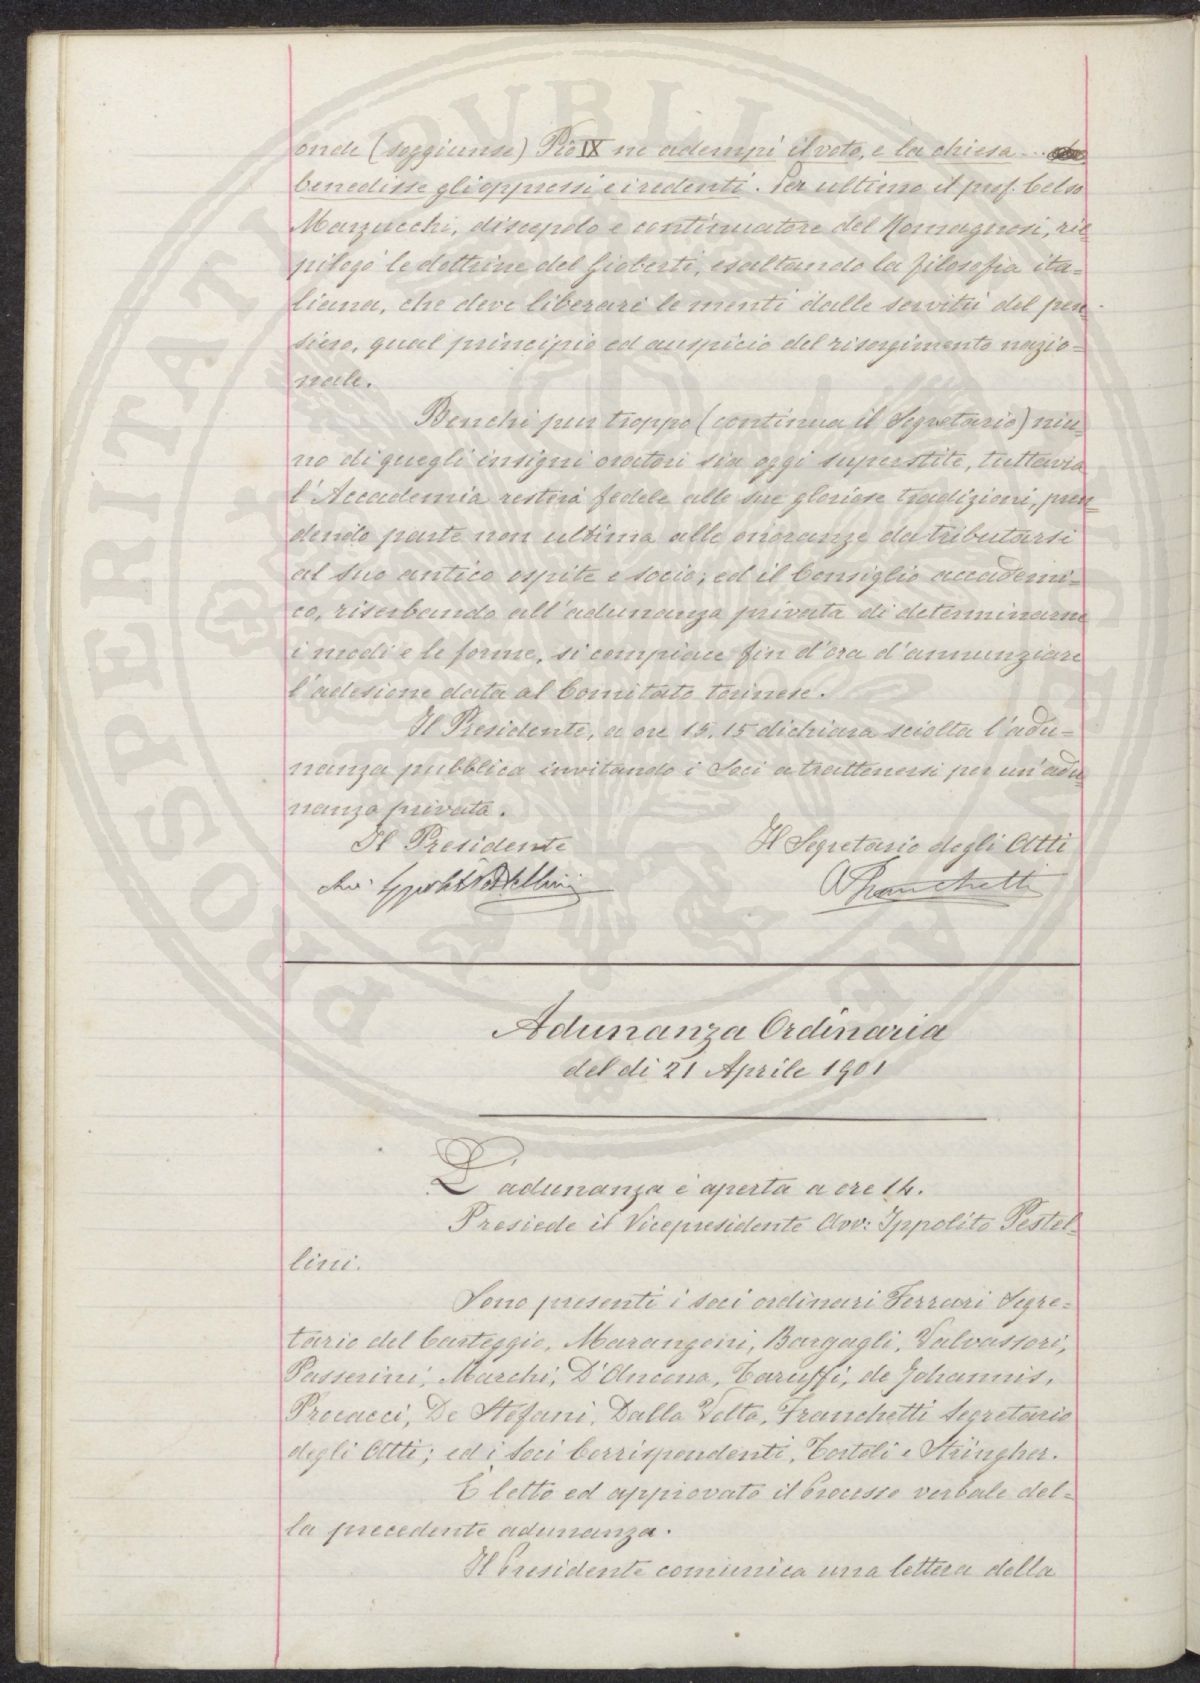 onde (soggiunse) Pio IX ne adempì il voto, e la chiesa ...
benedisse gli oppressi e i redenti. Per ultimo il prof. Celso
Marzucchi, discepolo e continuatore del Romagnosi, rie-
pilogò le dottrine del Gioberti, esaltando la filosofia ita-
liana, che deve liberare le menti dalle servitù del pen-
siero, qual principio ed auspicio del risorgimento nazio-
nale.
Benchè pur troppo (continua il Segretario) niu-
no di quegli insigni oratori sia oggi superstite, tuttavia
l'Accademia resterà fedele alle sue gloriose tradizioni, pren-
dendo parte non ultima alle onoranze da tributarsi
al suo antico ospite e socio; ed il Consiglio accademi-
co, riserbando all'adunanza privata di determinarne
i modi e le forme, si compiace fin d'ora d'annunziare
l'adesione data al Comitato torinese.
Il Presidente, a ore 15,15 dichiara sciolta l'adu-
nanza pubblica invitando i Soci a trattenersi per un'adu-
nanza privata.
Il Presidente Il Segretario degli Atti
Avv. Ippolito Pestellini A Franchetti
Adunanza Ordinaria
del dì 21 Aprile 1901
L'adunanza è aperta a ore 14.
Presiede il Vicepresidente Avv: Ippolito Pestel-
lini.
Sono presenti i soci ordinari Ferrari Segre-
tario del Carteggio, Marangoni, Bargagli, Valvassori,
Passerini, Marchi, D'Ancona, Taruffi, de Johannis,
Procacci, De Stefani, Dalla Volta, Franchetti Segretario
degli Atti; ed i Soci Corrispondenti, Tortoli e Stringher.
È letto ed approvato il Processo verbale del-
la precedente adunanza.
Il Presidente comunica una lettera della
PROSPERITATI PVBLICAE